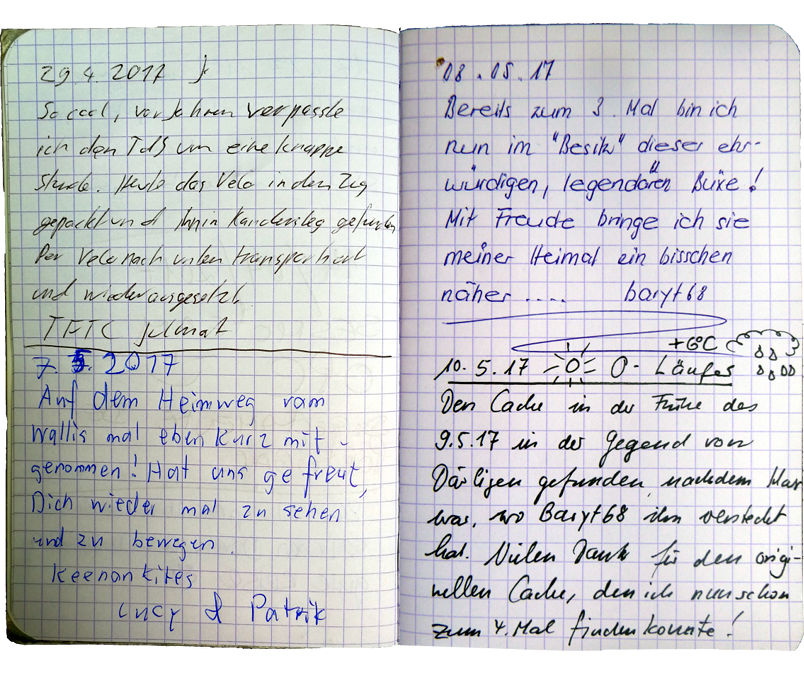 29.4.2017
So cool, vor Jahren verpasste
ich den TdS um eine knappe
Stunde. Heute das Velo in den Zug
gepackt und ihn in Kandersteg gefunden
Per Velo nach unten transportiert
und wieder ausgesetzt
TFTC julmat
7.5.2017
Auf dem Heimweg vom
Wallis mal eben kurz mit-
genommen! Hat uns gefreut,
Dich wieder mal zu sehen
und zu bewegen.
Keenonkites
Lucy & Patrik
08.05.17
Bereits zum 3. Mal bin ich
nun im "Besitz" dieser ehr-
würdigen, legendären Büxe!
Mit Freude bringe ich sie
meiner Heimat ein bisschen
näher ..... baryt68
+6°C
10.5.17 O-Läufer
Den Cache in der Frühe des
9.5.17 in der Gegend von
Därligen gefunden, nachdem klar
war, wo Baryt68 ihn versteckt
hat. Vielen Dank für den origi-
nellen Cache, den ich nun schon
zum 4. Mal finden konnte!